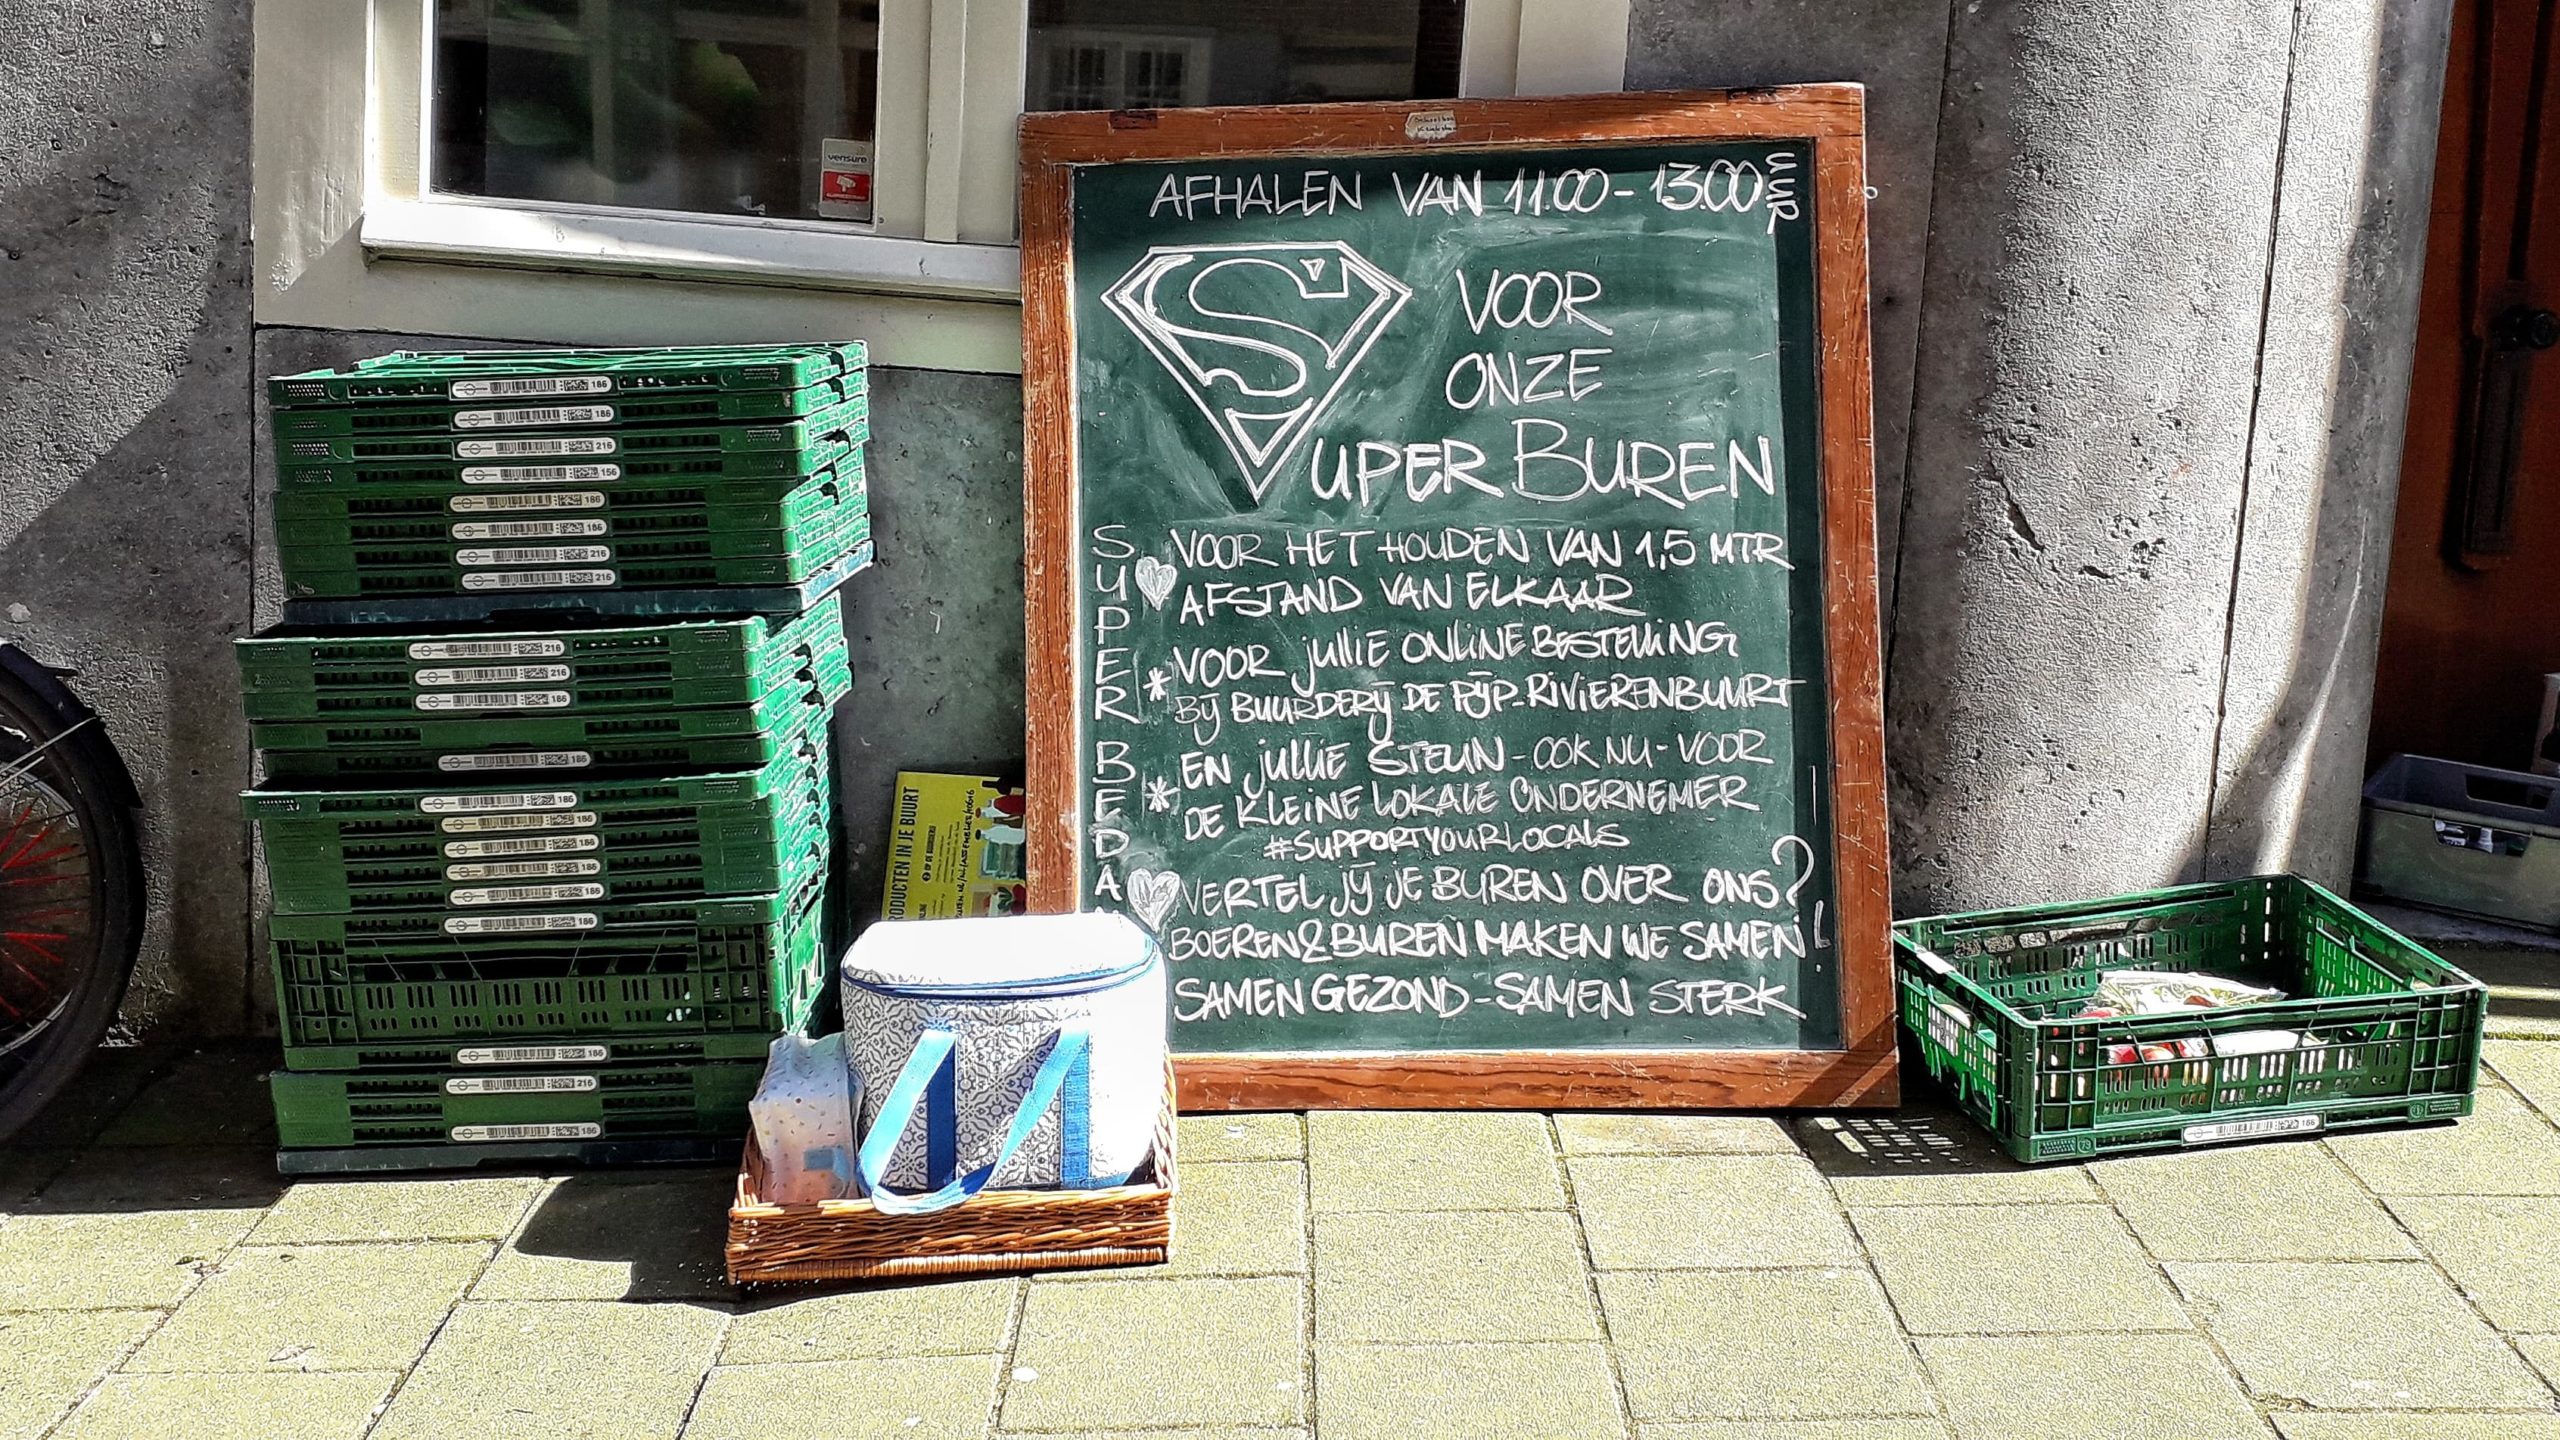 vensure
AFHALEN VAN 11.00 - 13.00 UUR
S
VOOR
ONZE
UPER BUREN
SUPER BEDA
VOOR HET HOUDEN VAN 1,5 MTR
AFSTAND VAN ELKAAR
* VOOR JULLIE ONLINE BESTELLING
BIJ BUURDERIJ DE PIJP-RIVIERENBUURT
* EN JULLIE STEUN - OOK NU - VOOR
DE KLEINE LOKALE ONDERNEMER
#SUPPORTYOURLOCALS
VERTEL JIJ JE BUREN OVER ONS?
BOEREN & BUREN MAKEN WE SAMEN!
SAMEN GEZOND - SAMEN STERK
RODUCTEN IN JE BUURT
186
186
216
156
186
186
216
216
216
216
186
186
186
186
186
186
186
186
186
216
186
186